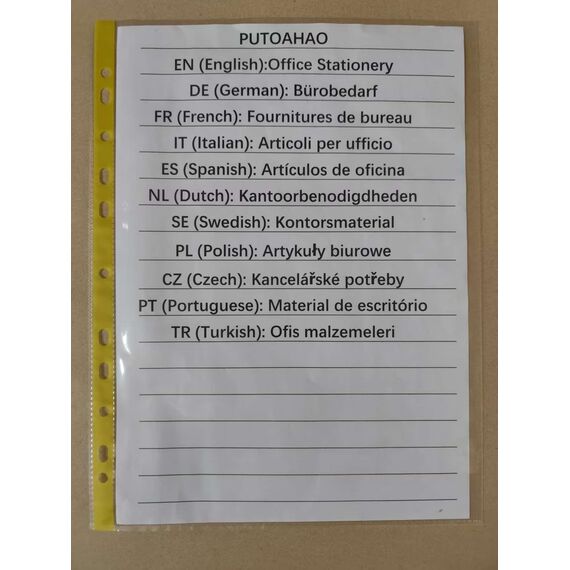 PUTOAHAO
EN (English):Office Stationery
DE (German): Bürobedarf
FR (French): Fournitures de bureau
IT (Italian): Articoli per ufficio
ES (Spanish): Artículos de oficina
NL (Dutch): Kantoorbenodigdheden
SE (Swedish): Kontorsmaterial
PL (Polish): Artykuły biurowe
CZ (Czech): Kancelářské potřeby
PT (Portuguese): Material de escritório
TR (Turkish): Ofis malzemeleri